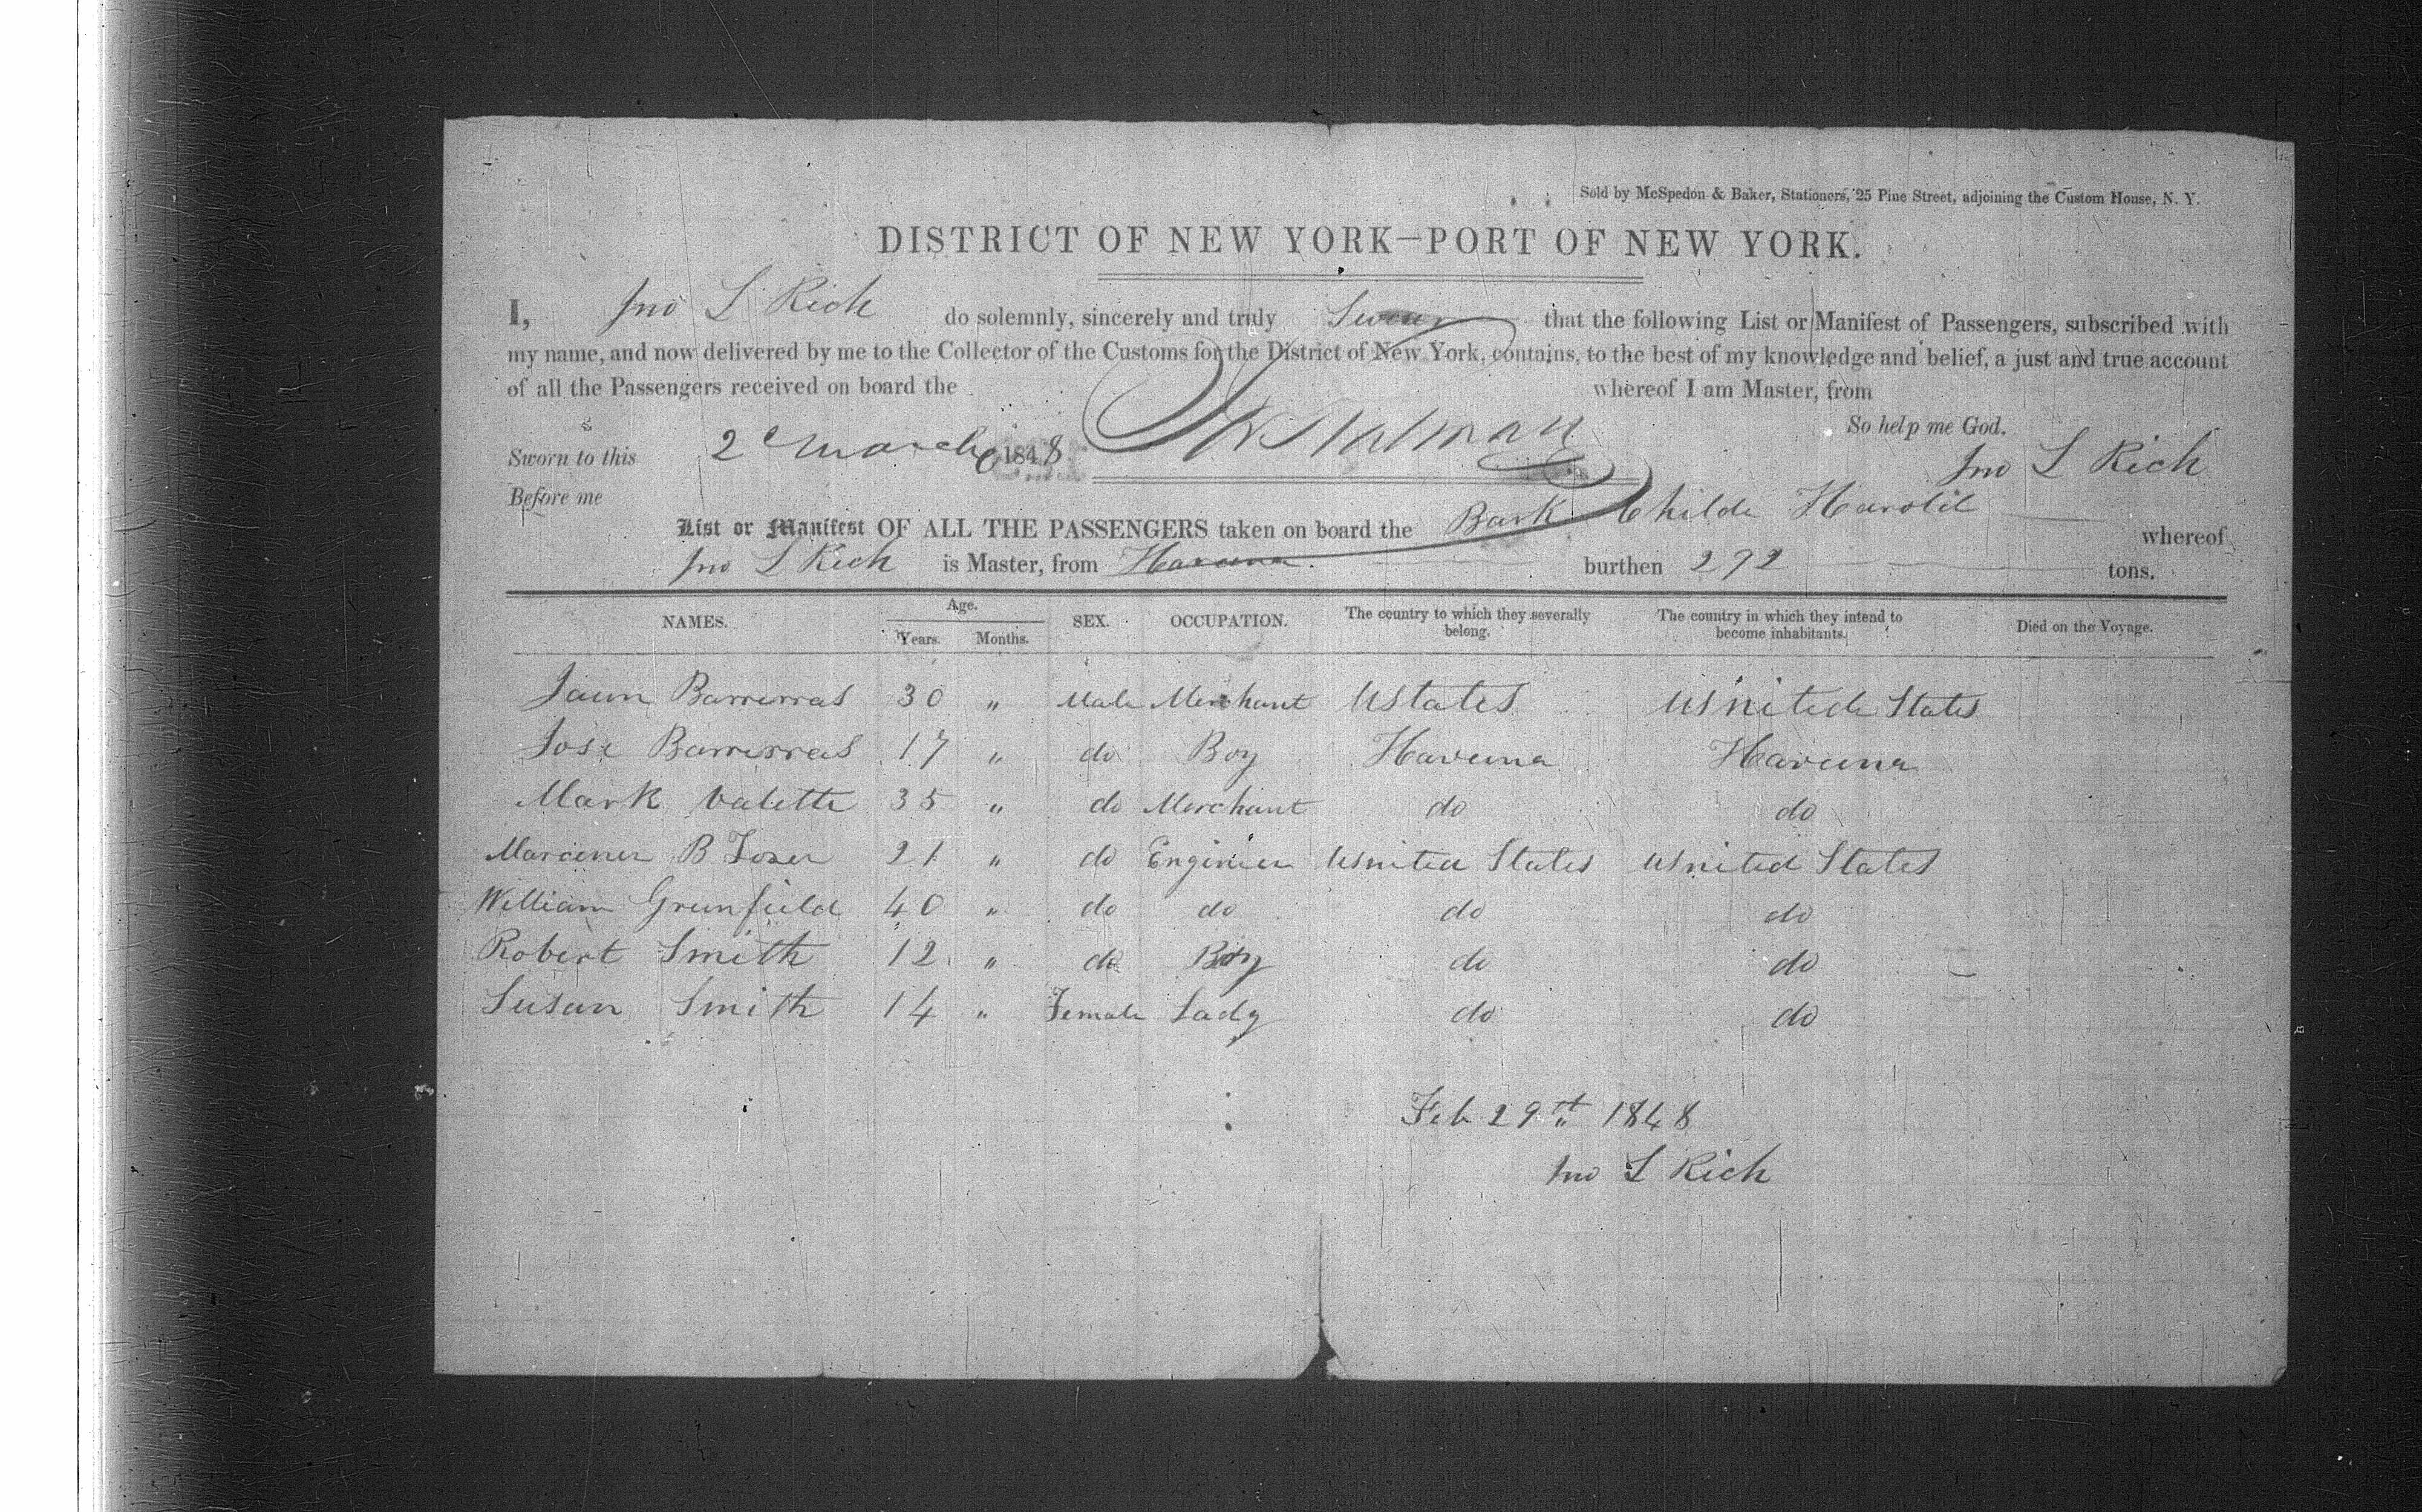 Sold by McSpedon & Baker, Stationers, 25 Pine Street, adjoining the Custom House, N. Y.
DISTRICT OF NEW YORK—PORT OF NEW YORK.
I, Jno L Rich do solemnly, sincerely and truly Swear that the following List or Manifest of Passengers, subscribed with
my name, and now delivered by me to the Collector of the Customs for the District of New York, contains, to the best of my knowledge and belief, a just and true account
of all the Passengers received on board the whereof I am Master, from
So help me God.
Sworn to this 2 March 1848 Jno L Rich
Before me
List or Manifest OF ALL THE PASSENGERS taken on board the Bark Childe Harold whereof
Jno L Rich is Master, from Havana. burthen 292 tons.
NAMES. Age. Years. Months. SEX. OCCUPATION. The country to which they severally belong. The country in which they intend to become inhabitants. Died on the Voyage.
Jaun Barrerras 30 " Male Merchant UStates United States
Jose Barrerras 17 " do Boy Havana Havana
Mark Valette 35 " do Merchant do do
B 21 " do Engineer United States United States
William Grunfield 40 " do do do do
Robert Smith 12 " do Boy do do
Susan Smith 14 " Female Lady do do
Feb 29th 1848
Jno L Rich